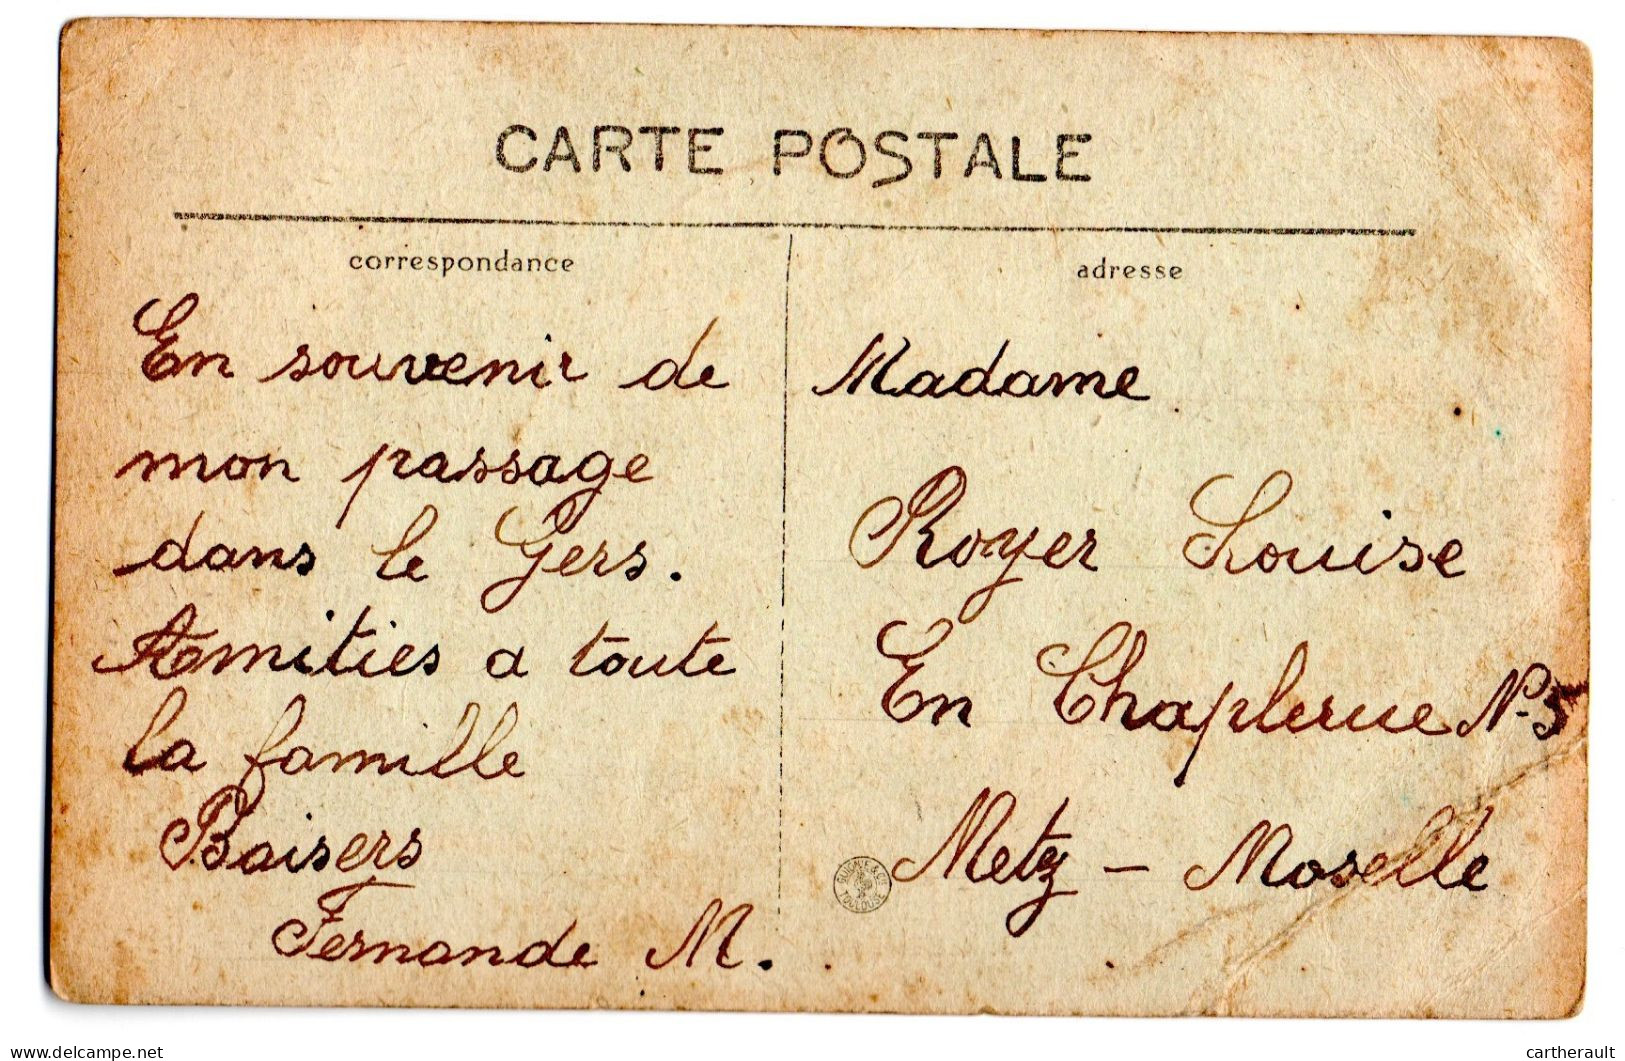 CARTE POSTALE
correspondance
En souvenir de
mon passage
dans le Gers.
Amitiés a toute
la famille
Baisers
Fernande M.
adresse
Madame
Royer Louise
En Chaplerue N. 5
Metz - Moselle
GUIGNE & Cie TOULOUSE
delcampe.net
cartherault